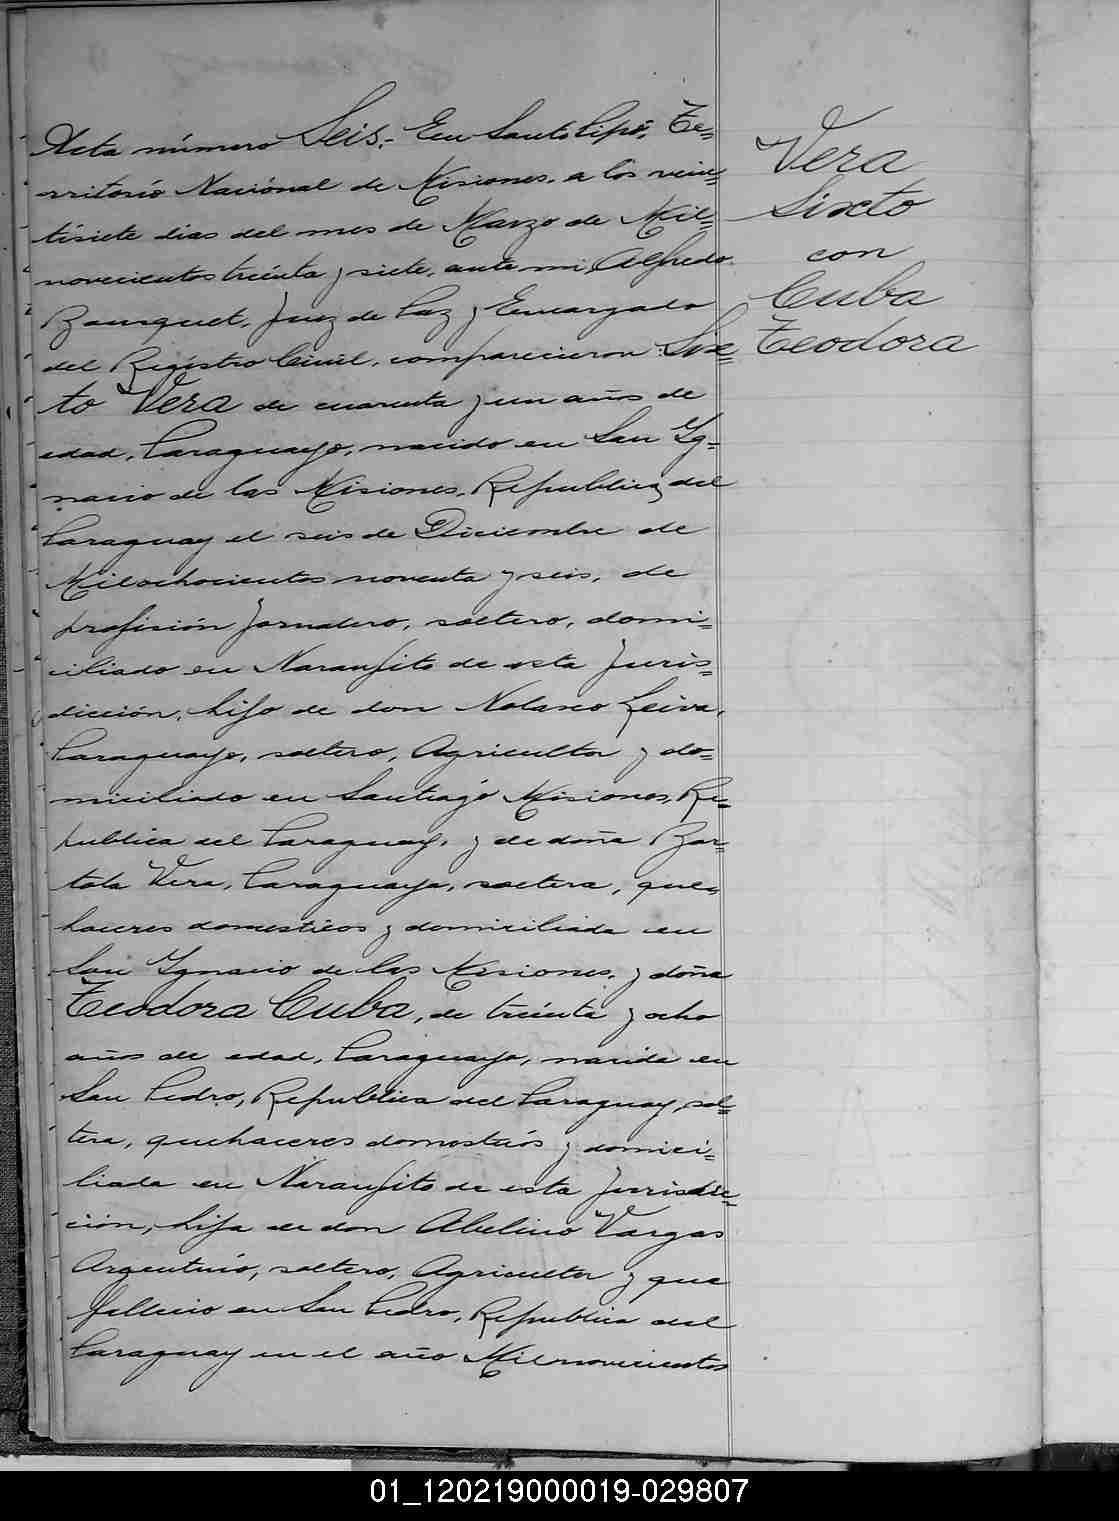 Acta número Seis.- En Santo Pipó, Te=
rritorio Nacional de Misiones, a los vein=
tisiete dias del mes de Marzo de Mil=
novecientos treinta y siete, ante mi, Alfredo
Bousquet, Juez de Paz y Encargado
del Registro Civil, comparecieron: Six=
to Vera de cuarenta y un años de
edad, Paraguayo, nacido en San Yg=
nacio de las Misiones, Republica del
Paraguay el seis de Diciembre de
Milochocientos noventa y seis, de
profisión Jornalero, soltero, domi=
ciliado en Naranjito de esta Juris=
dicción, hijo de don Nolasco Leiva,
Paraguayo, soltero, Agricultor y do=
miciliado en Santiago Misiones, Re=
publica del Paraguay, y de doña Bar=
tola Vera, Paraguaya, soltera, que=
haceres domesticos y domiciliada en
San Ygnacio de las Misiones, y doña
Teodora Cuba, de treinta y ocho
años de edad, Paraguaya, nacida en
San Pedro, Republica del Paraguay, sol=
tera, quehaceres domesticos y domici=
liada en Naranjito de esta Jurisdic=
ción, hija de don Abelino Vargas
Argentino, soltero, Agricultor y que
fallecio en San Pedro, Republica del
Paraguay en el año Milnovecientos
Vera
Sixto
con
Cuba
Teodora
01_120219000019-029807